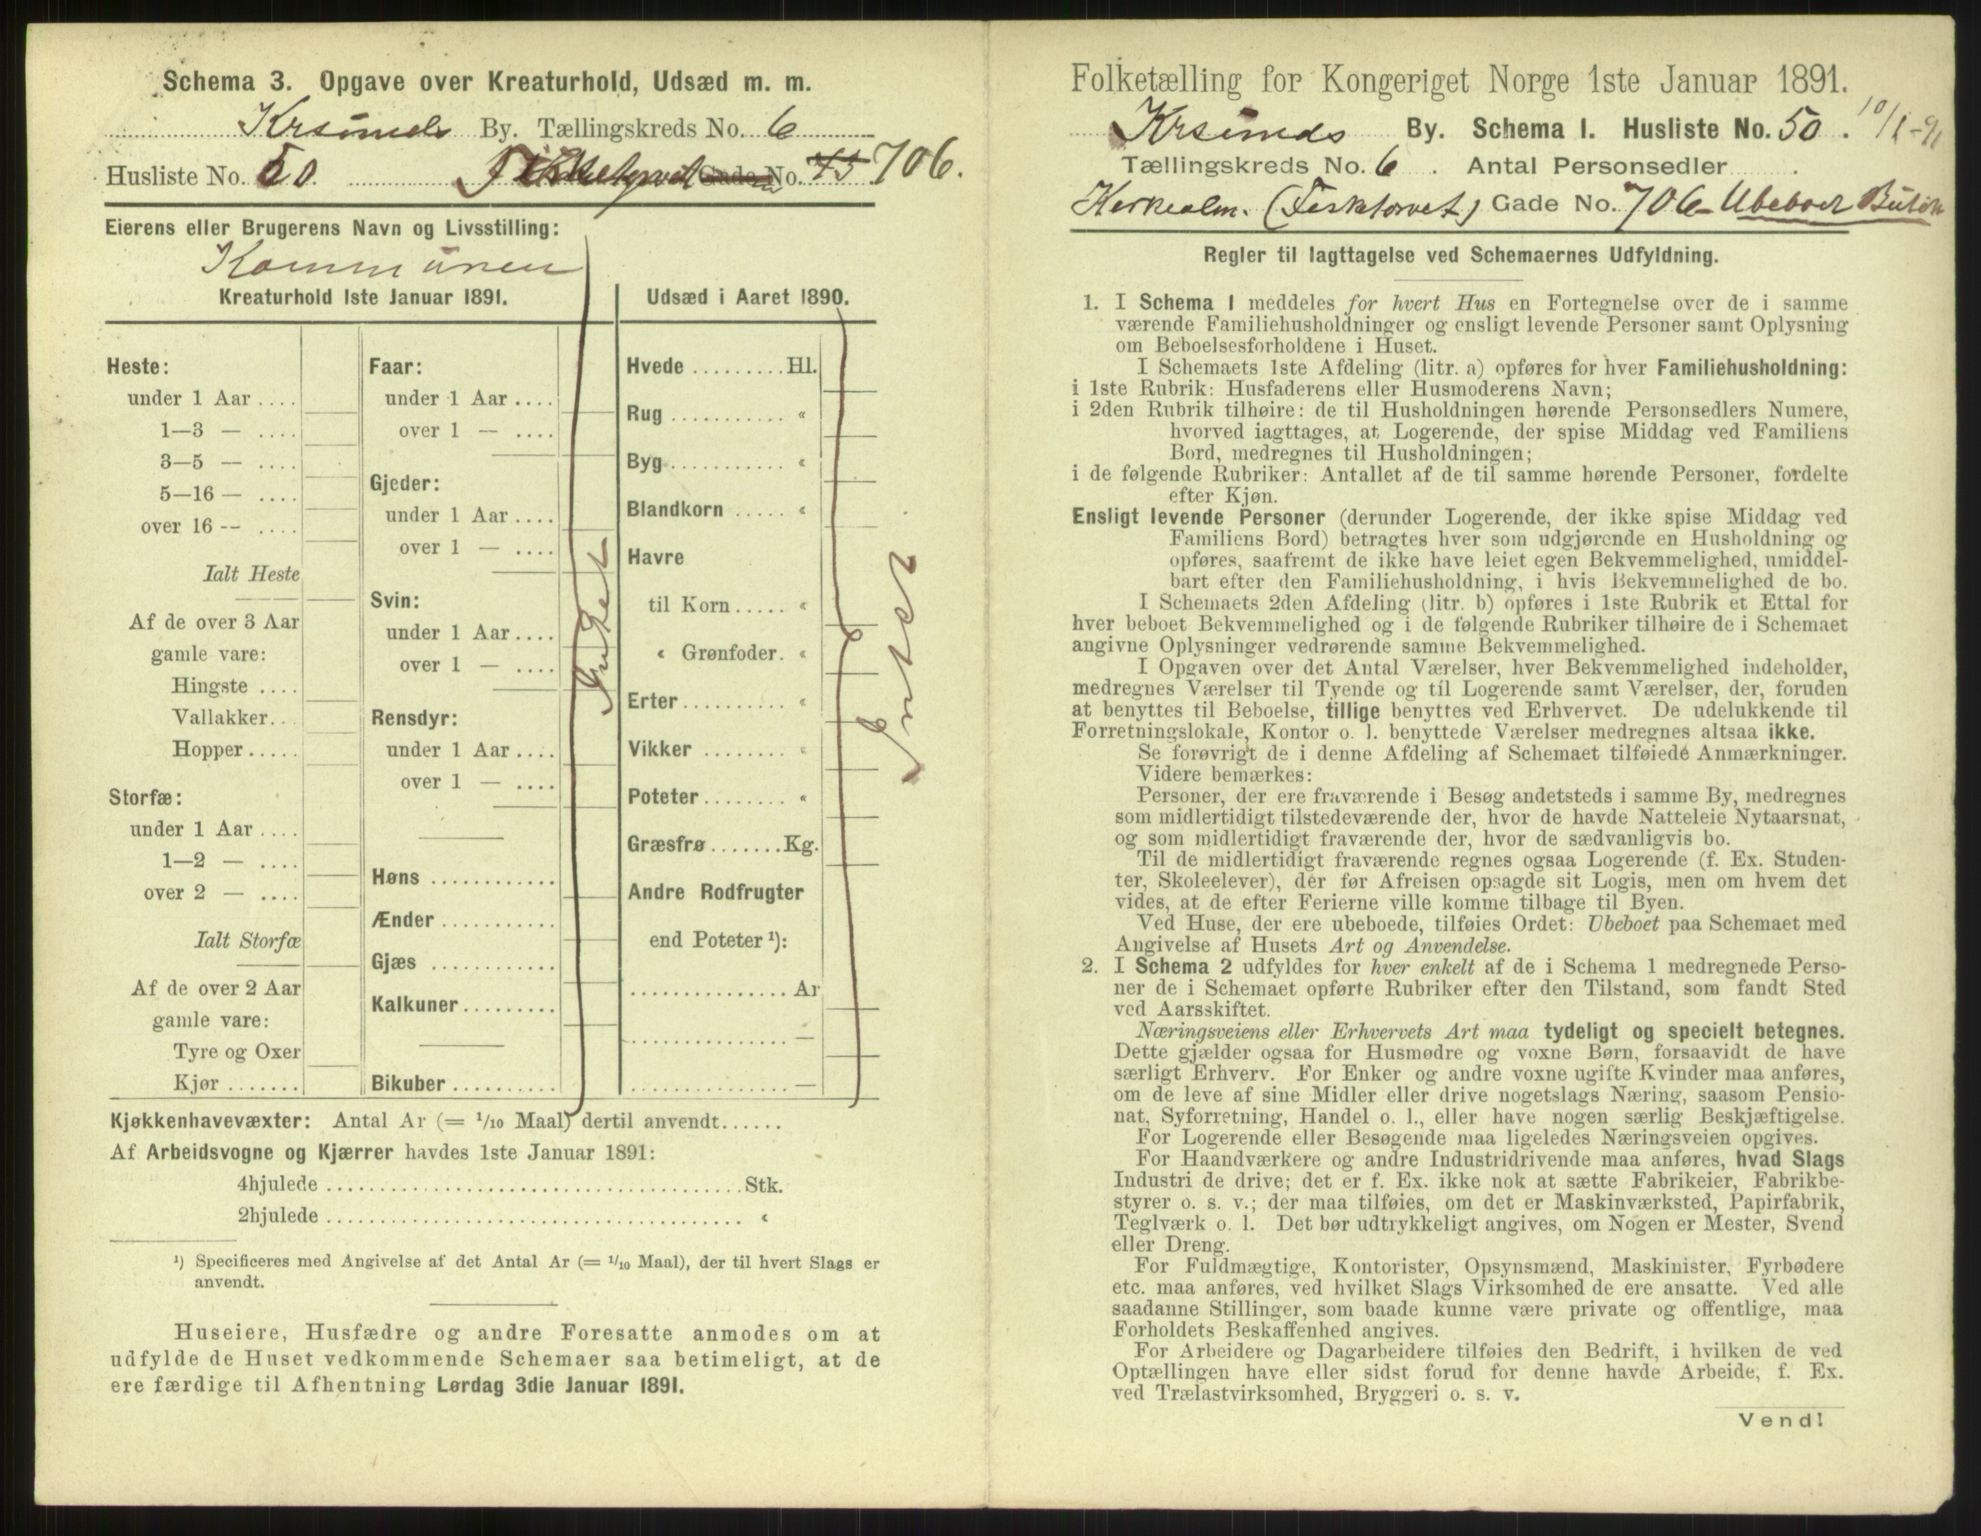 Schema 3. Opgave over Kreaturhold, Udsæd m. m.
Krsunds By. Tællingskreds No. 6
Husliste No. 50. Fisketorvet Gade No. 45 706.
Eierens eller Brugerens Navn og Livsstilling:
Kommunen
Kreaturhold 1ste Januar 1891.
Heste:
under 1 Aar ....
1—3 — ....
3—5 — ....
5—16 — ....
over 16 -- ....
Ialt Heste
Af de over 3 Aar
gamle vare:
Hingste ....
Vallakker...
Hopper.....
Storfæ:
under 1 Aar ....
1—2 — ....
over 2 — ....
Ialt Storfæ
Af de over 2 Aar
gamle vare:
Tyre og Oxer
Kjør .......
Faar:
under 1 Aar ....
over 1 — ....
Gjeder:
under 1 Aar ....
over 1 — ....
Svin:
under 1 Aar ....
over 1 — ....
Rensdyr:
under 1 Aar ....
over 1 — ....
Høns ............
Ænder ...........
Gjæs ............
Kalkuner.........
Bikuber ..........
Intet
Udsæd i Aaret 1890.
Hvede .........Hl.
Rug ........... «
Byg ........... «
Blandkorn ..... «
Havre
til Korn ..... «
« Grønfoder. «
Erter ......... «
Vikker ........ «
Poteter ........ «
Græsfrø .......Kg.
Andre Rodfrugter
end Poteter ¹):
............... Ar
............... —
............... —
Intet
Kjøkkenhavevæxter: Antal Ar (= 1/10 Maal) dertil anvendt......
Af Arbeidsvogne og Kjærrer havdes 1ste Januar 1891:
4hjulede ........................................Stk.
2hjulede ........................................ «
¹) Specificeres med Angivelse af det Antal Ar (= 1/10 Maal), der til hvert Slags er
anvendt.
Huseiere, Husfædre og andre Foresatte anmodes om at
udfylde de Huset vedkommende Schemaer saa betimeligt, at de
ere færdige til Afhentning Lørdag 3die Januar 1891.
Folketælling for Kongeriget Norge 1ste Januar 1891.
Krsunds By. Schema I. Husliste No. 50. 10/1-91
Tællingskreds No. 6. Antal Personsedler
Kirkealm. (Fisktorvet) Gade No. 706 Ubeboet Butik
Regler til Iagttagelse ved Schemaernes Udfyldning.
1. I Schema I meddeles for hvert Hus en Fortegnelse over de i samme
værende Familiehusholdninger og ensligt levende Personer samt Oplysning
om Beboelsesforholdene i Huset.
I Schemaets 1ste Afdeling (litr. a) opføres for hver Familiehusholdning:
i 1ste Rubrik: Husfaderens eller Husmoderens Navn;
i 2den Rubrik tilhøire: de til Husholdningen hørende Personsedlers Numere,
hvorved iagttages, at Logerende, der spise Middag ved Familiens
Bord, medregnes til Husholdningen;
i de følgende Rubriker: Antallet af de til samme hørende Personer, fordelte
efter Kjøn.
Ensligt levende Personer (derunder Logerende, der ikke spise Middag ved
Familiens Bord) betragtes hver som udgjørende en Husholdning og
opføres, saafremt de ikke have leiet egen Bekvemmelighed, umiddel-
bart efter den Familiehusholdning, i hvis Bekvemmelighed de bo.
I Schemaets 2den Afdeling (litr. b) opføres i 1ste Rubrik et Ettal for
hver beboet Bekvemmelighed og i de følgende Rubriker tilhøire de i Schemaet
angivne Oplysninger vedrørende samme Bekvemmelighed.
I Opgaven over det Antal Værelser, hver Bekvemmelighed indeholder,
medregnes Værelser til Tyende og til Logerende samt Værelser, der, foruden
at benyttes til Beboelse, tillige benyttes ved Erhvervet. De udelukkende til
Forretningslokale, Kontor o. l. benyttede Værelser medregnes altsaa ikke.
Se forøvrigt de i denne Afdeling af Schemaet tilføiede Anmærkninger.
Videre bemærkes:
Personer, der ere fraværende i Besøg andetsteds i samme By, medregnes
som midlertidigt tilstedeværende der, hvor de havde Natteleie Nytaarsnat,
og som midlertidigt fraværende der, hvor de sædvanligvis bo.
Til de midlertidigt fraværende regnes ogsaa Logerende (f. Ex. Studen-
ter, Skoleelever), der før Afreisen opsagde sit Logis, men om hvem det
vides, at de efter Ferierne ville komme tilbage til Byen.
Ved Huse, der ere ubeboede, tilføies Ordet: Ubeboet paa Schemaet med
Angivelse af Husets Art og Anvendelse.
2. I Schema 2 udfyldes for hver enkelt af de i Schema 1 medregnede Perso-
ner de i Schemaet opførte Rubriker efter den Tilstand, som fandt Sted
ved Aarsskiftet.
Næringsveiens eller Erhvervets Art maa tydeligt og specielt betegnes.
Dette gjælder ogsaa for Husmødre og voxne Børn, forsaavidt de have
særligt Erhverv. For Enker og andre voxne ugifte Kvinder maa anføres,
om de leve af sine Midler eller drive nogetslags Næring, saasom Pensio-
nat, Syforretning, Handel o. l., eller have nogen særlig Beskjæftigelse.
For Logerende eller Besøgende maa ligeledes Næringsveien opgives.
For Haandværkere og andre Industridrivende maa anføres, hvad Slags
Industri de drive; det er f. Ex. ikke nok at sætte Fabrikeier, Fabrikbe-
styrer o. s. v.; der maa tilføies, om det er Maskinværksted, Papirfabrik,
Teglværk o. l. Det bør udtrykkeligt angives, om Nogen er Mester, Svend
eller Dreng.
For Fuldmægtige, Kontorister, Opsynsmænd, Maskinister, Fyrbødere
etc. maa anføres, ved hvilket Slags Virksomhed de ere ansatte. Ved alle
saadanne Stillinger, som baade kunne være private og offentlige, maa
Forholdets Beskaffenhed angives.
For Arbeidere og Dagarbeidere tilføies den Bedrift, i hvilken de ved
Optællingen have eller sidst forud for denne havde Arbeide, f. Ex.
ved Trælastvirksomhed, Bryggeri o. s. v.
Vend!